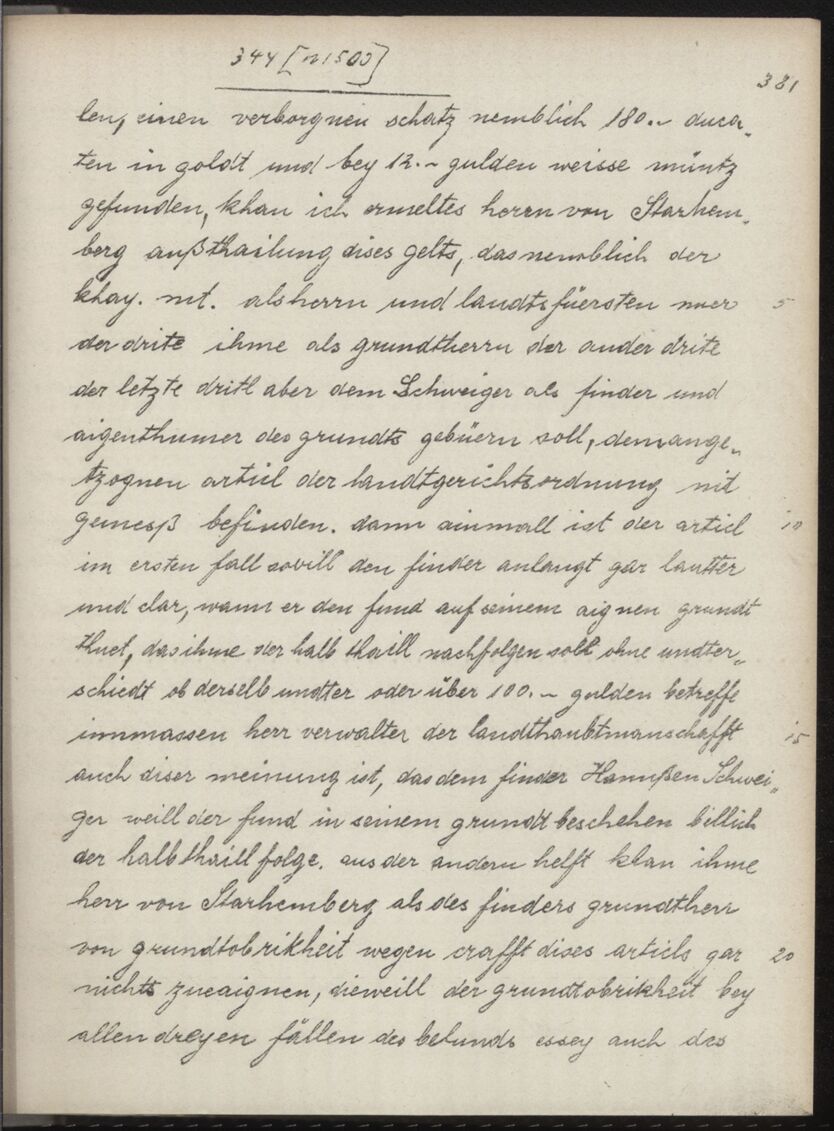 344 [n 1500]
381
len, einen verborgnen schatz nemblich 180.~ duca„
ten in goldt und bey 12.~ gulden weisse müntz
gefunden, khan ich ermeltes herrn von Starhem„
berg außthailung dises gelts, das nemblich der
khay. mt. als herrn und landtsfüersten nuer 5
der drite ihme als grundtherrn der ander drite
der letzte dritl aber dem Schweiger als finder und
aigenthumer des grundts gebüern soll, dem ange„
tzognen articl der landtgerichtsordnung nit
gemeeß befinden. dann ainmall ist der articl 10
im ersten fall sovill den finder anlangt gar lautter
und clar, wann er den fund auf seinem aignen grundt
thuet, das ihme der halb thaill nachfolgen soll ohne undter„
schiedt ob derselb undter oder über 100.~ gulden betreffe
innmassen herr verwalter der landtshaubtmanschafft 15
auch diser meinung ist, das dem finder Hannßen Schwei„
ger weill der fund in seinem grundt beschehen billich
der halb thaill folge. aus der andern helft khan ihme
herr von Starhemberg als des finders grundtherr
von grundtobrikheit wegen crafft dises articls gar 20
nichts zueaignen, dieweill der grundtobrikheit bey
allen dreyen fällen des befunds essey auch das